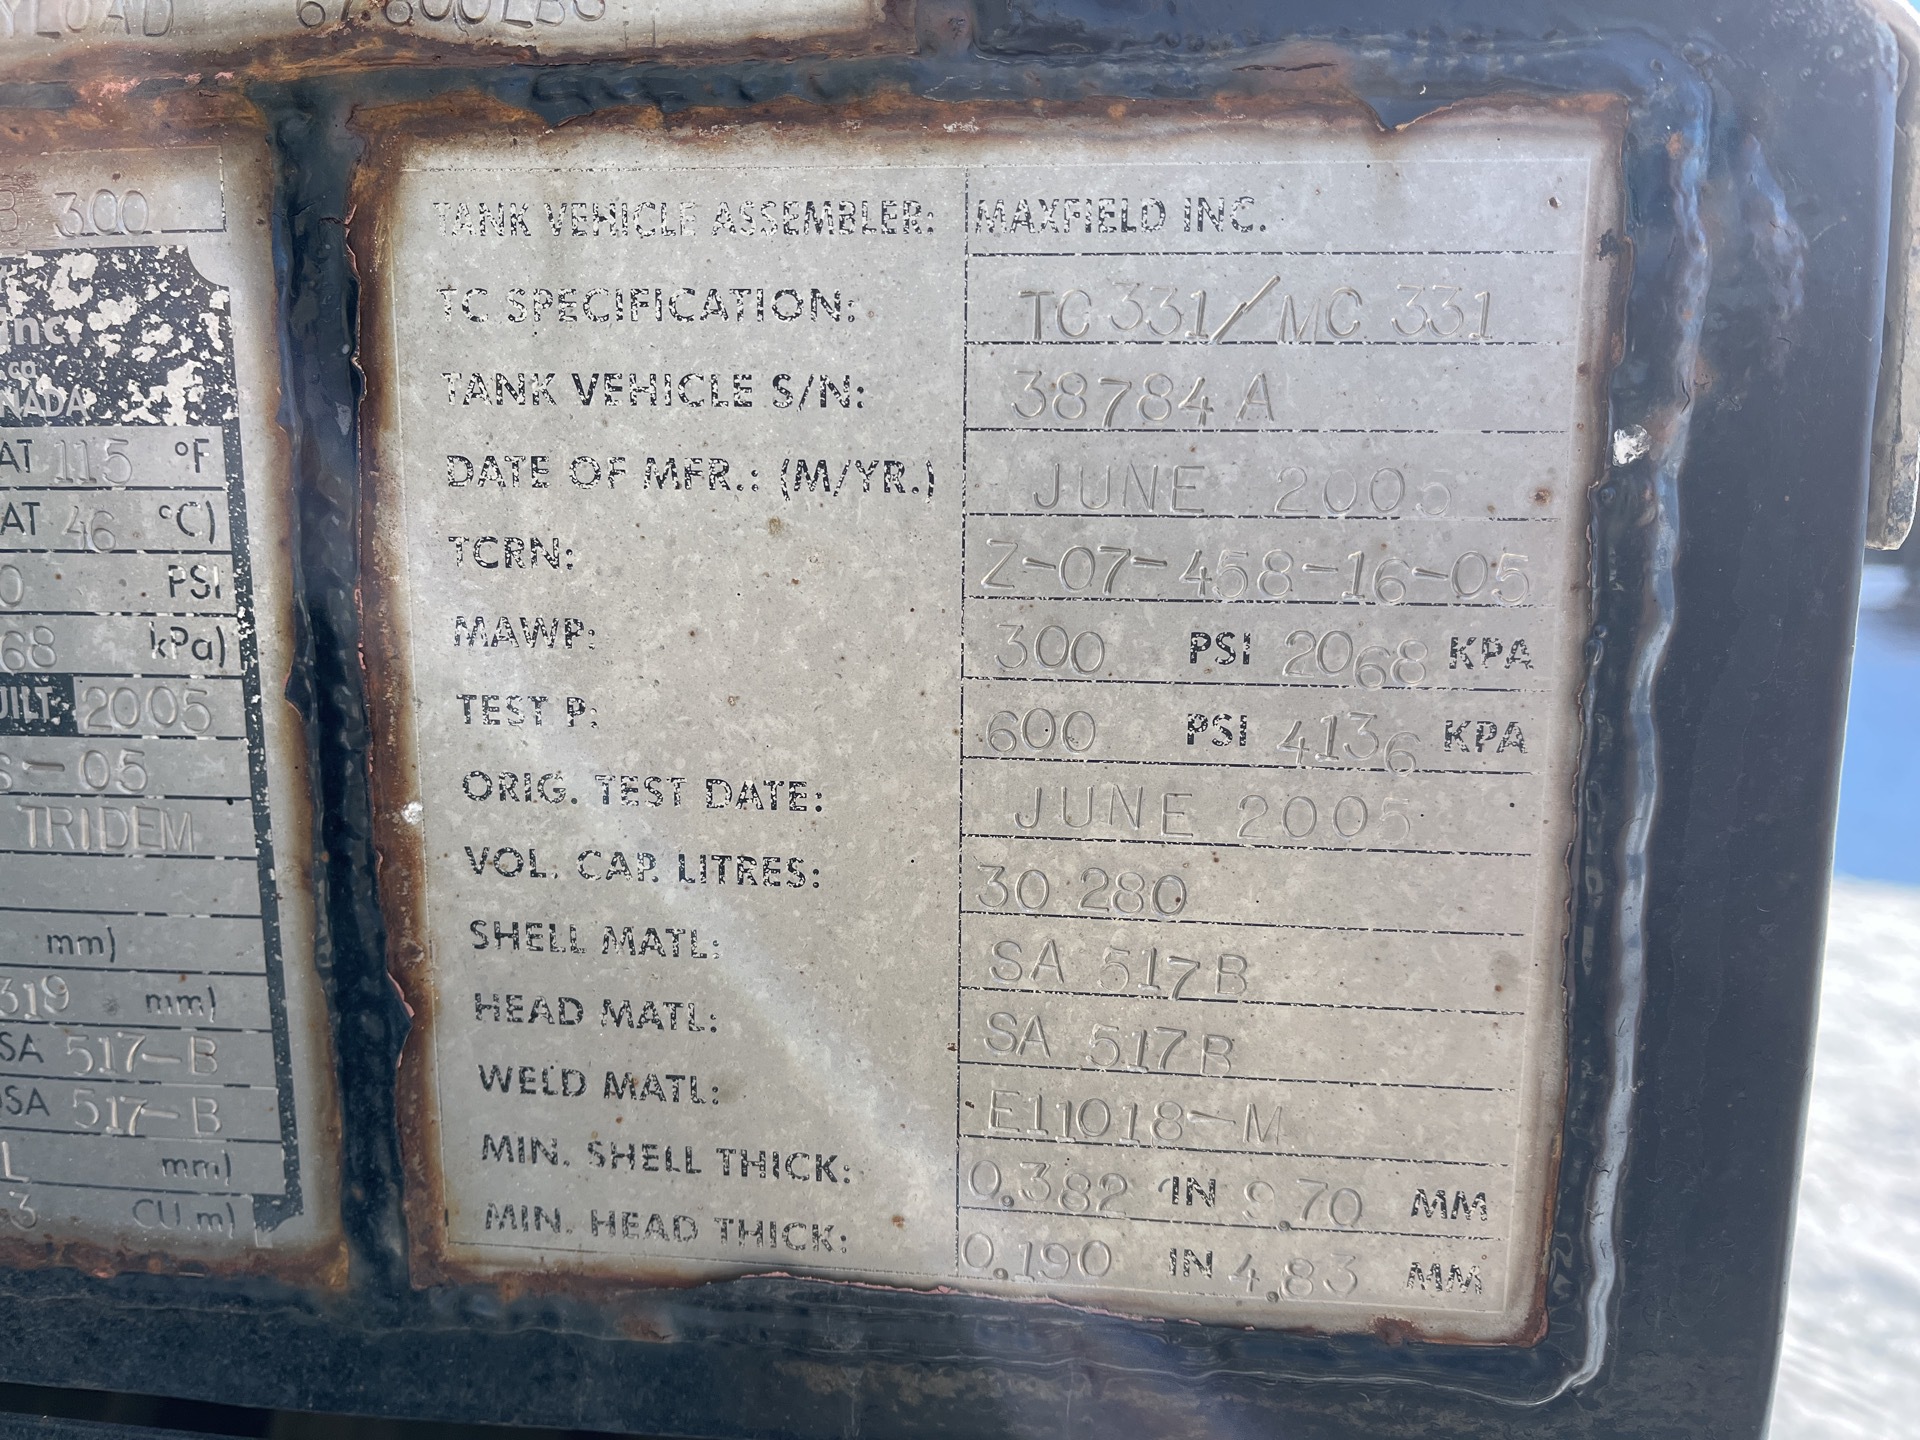 YLOAD 67 800LBS
B 300
inc.
.ca
NADA
AT 115 °F
AT 46 °C)
0 PSI
68 kPa)
UILT 2005
S-05
TRIDEM
mm)
319 mm)
SA 517-B
SA 517-B
L mm)
3 CU.m)
TANK VEHICLE ASSEMBLER: MAXFIELD INC.
TC SPECIFICATION: TC 331/MC 331
TANK VEHICLE S/N: 38784 A
DATE OF MFR.: (M/YR.) JUNE 2005
TCRN: Z-07-458-16-05
MAWP: 300 PSI 2068 KPA
TEST P: 600 PSI 4136 KPA
ORIG. TEST DATE: JUNE 2005
VOL. CAP. LITRES: 30 280
SHELL MATL: SA 517B
HEAD MATL: SA 517B
WELD MATL: E11018-M
MIN. SHELL THICK: 0.382 IN 9.70 MM
MIN. HEAD THICK: 0.190 IN 4.83 MM